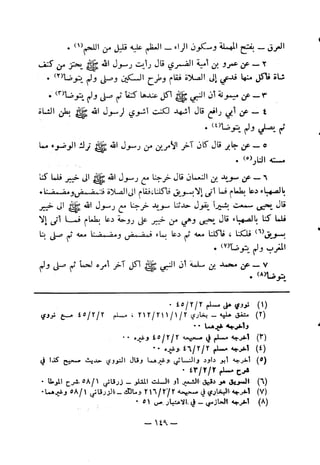 العرق – بفتح المهملة وسكون الراء – العظم عليه قليل من اللحم(١) .
٢ – عن عمرو بن أمية الضمري قال رأيت رسول الله ﷺ يحتز من كتف
شاة فأكل منها فدعي إلى الصلاة فقام وطرح السكين وصلى ولم يتوضأ(٢) .
٣ – عن ميمونة أن النبي ﷺ أكل عندها كتفا ثم صلى ولم يتوضأ(٣) .
٤ – عن أبي رافع قال أشهد لكنت أشوي لرسول الله ﷺ بطن الشاة
ثم يصلي ولم يتوضأ(٤) .
٥ – عن جابر قال كان آخر الأمرين من رسول الله ﷺ ترك الوضوء مما
مسته النار(٥) .
٦ – عن سويد بن النعمان قال خرجنا مع رسول الله ﷺ إلى خيبر فلما كنا
بالصهباء دعا بطعام فما أتى إلا بسويق فأكلنا، فقام إلى الصلاة فتمضمض ومضمضنا .
قال يحيى سمعت بشيرا يقول حدثنا سويد خرجنا مع رسول الله ﷺ إلى خيبر
فلما كنا بالصهباء قال يحيى وهي من خيبر على روحة دعا بطعام فما أتى إلا
بسويق(٦) فلكناه ، فأكلنا معه ثم دعا بماء فمضمض ومضمضنا معه ثم صلى بنا
المغرب ولم يتوضأ(٧) .
٧ – عن محمد بن سلمة أن النبي ﷺ أكل آخر أمره لحما ثم صلى ولم
يتوضأ(٨) .
(١) نووي على مسلم ٤٥/٢/٢ .
(٢) متفق عليه – بخاري ٢١٢/٢١١/١/٢ ، مسلم ٤٥/٢/٢ مع نووي
وأخرجه غيرهما ..
(٣) أخرجه مسلم في صحيحه ٤٥/٢/٢ وغيره ..
(٤) أخرجه مسلم ٤٦/٢/٢ وغيره ..
(٥) أخرجه أبو داود والنسائي وغيرهما وقال النووي حديث صحيح كذا في
شرح مسلم ٤٣/٢/٢ .
(٦) السويق هو دقيق الشعير أو السلت المقلو – زرقاني ٥٨/١ شرح الموطأ .
(٧) أخرجه البخاري في صحيحه ٢١٦/٢/٢ ومالك – الزرقاني ٥٨/١ وغيرهما .
(٨) أخرجه الحازمي – في الاعتبار ص ٥١ .
– ١٤٩ –